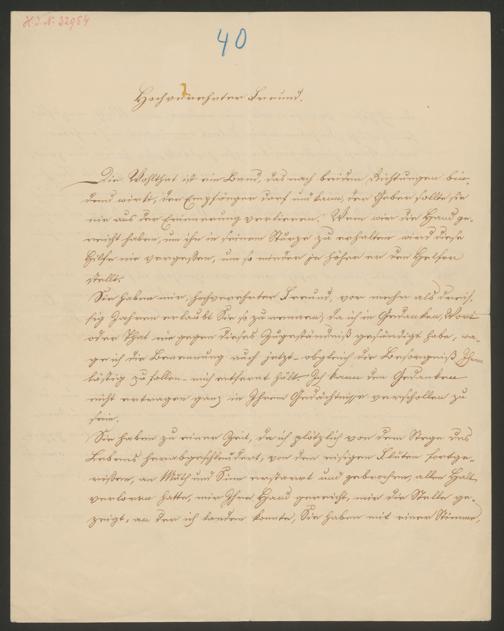 H.I.N. 32984
40
Hochverehrter Freund.
Die Wohlthat ist ein Band, das nach beiden Richtungen bin-
dend wirkt, der Empfänger darf und kann, der Geber sollte sie
nie aus der Erinnerung verlieren. Wem wir die Hand ge-
reicht haben, um ihn in seinem Sturze zu erhalten wird diese
Hilfe nie vergessen, um so minder je höher er den Helfer
stellt.
Sie haben mir, hochverehrter Freund, vor mehr als dreis-
sig Jahren erlaubt Sie so zu nennen, da ich in Gedanken, Wort
oder That nie gegen dieses Zugeständniß gesündigt habe, wa-
ge ich die Benennung auch jetzt - obgleich die Besorgniß Ihnen
lästig zu fallen - mich entfernt hält. Ich kann den Gedanken
nicht ertragen ganz in Ihrem Gedächtnisse verschollen zu
sein.
Sie haben zu einer Zeit, da ich plötzlich von dem Stege des
Lebens herabgeschleudert, von den eisigen Fluten fortge-
rissen, an Muth und Sinn erstarrt und gebrochen, allen Halt
verloren hatte, mir Ihre Hand gereicht, mir die Stelle ge-
zeigt, an der ich landen konnte, Sie haben mit einer Stimme,